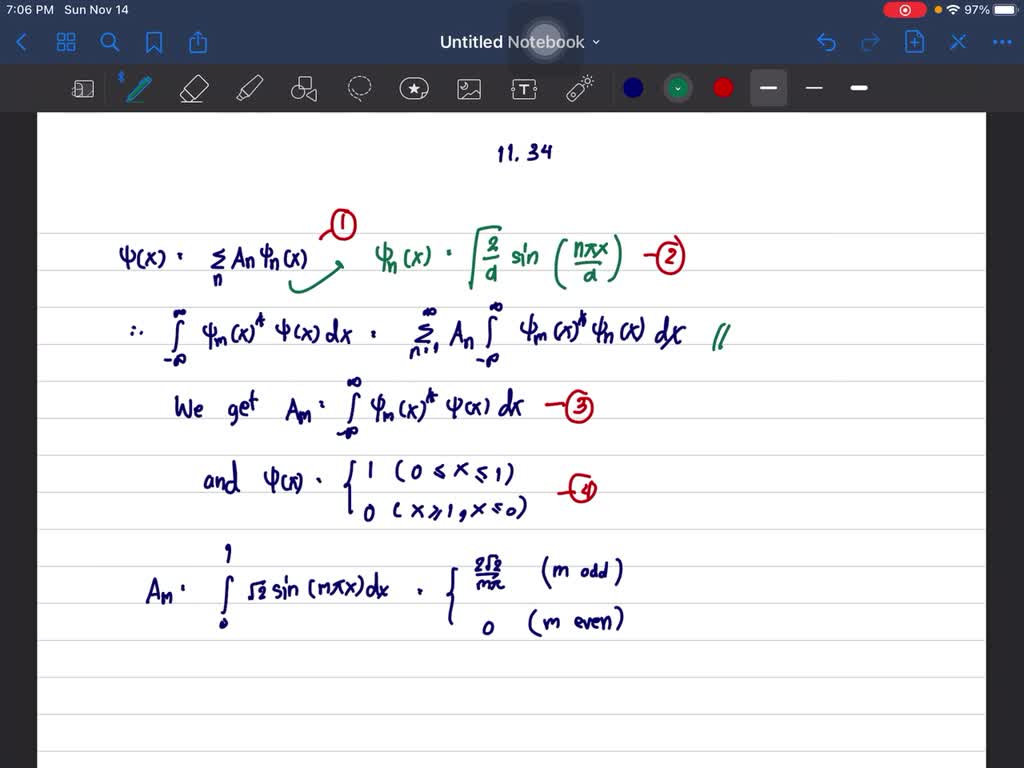 7:06 PM Sun Nov 14
97%
Untitled Notebook
T
11. 34
ψ(x) = Σ_n An ψn(x) — ① ψn(x) = √(2/a) sin (nπx/a) — ②
∴ ∫_{-∞}^{∞} ψm(x)* ψ(x) dx = Σ_{n=1}^{∞} An ∫_{-∞}^{∞} ψm(x)* ψn(x) dx //
We get Am = ∫_{-∞}^{∞} ψm(x)* ψ(x) dx — ③
and ψ(x) = { 1 (0 ≤ x ≤ 1)
0 (x ≥ 1, x ≤ 0) — ④
Am = ∫_0^1 √2 sin (mπx) dx = { 2√2/mπ (m odd)
0 (m even)